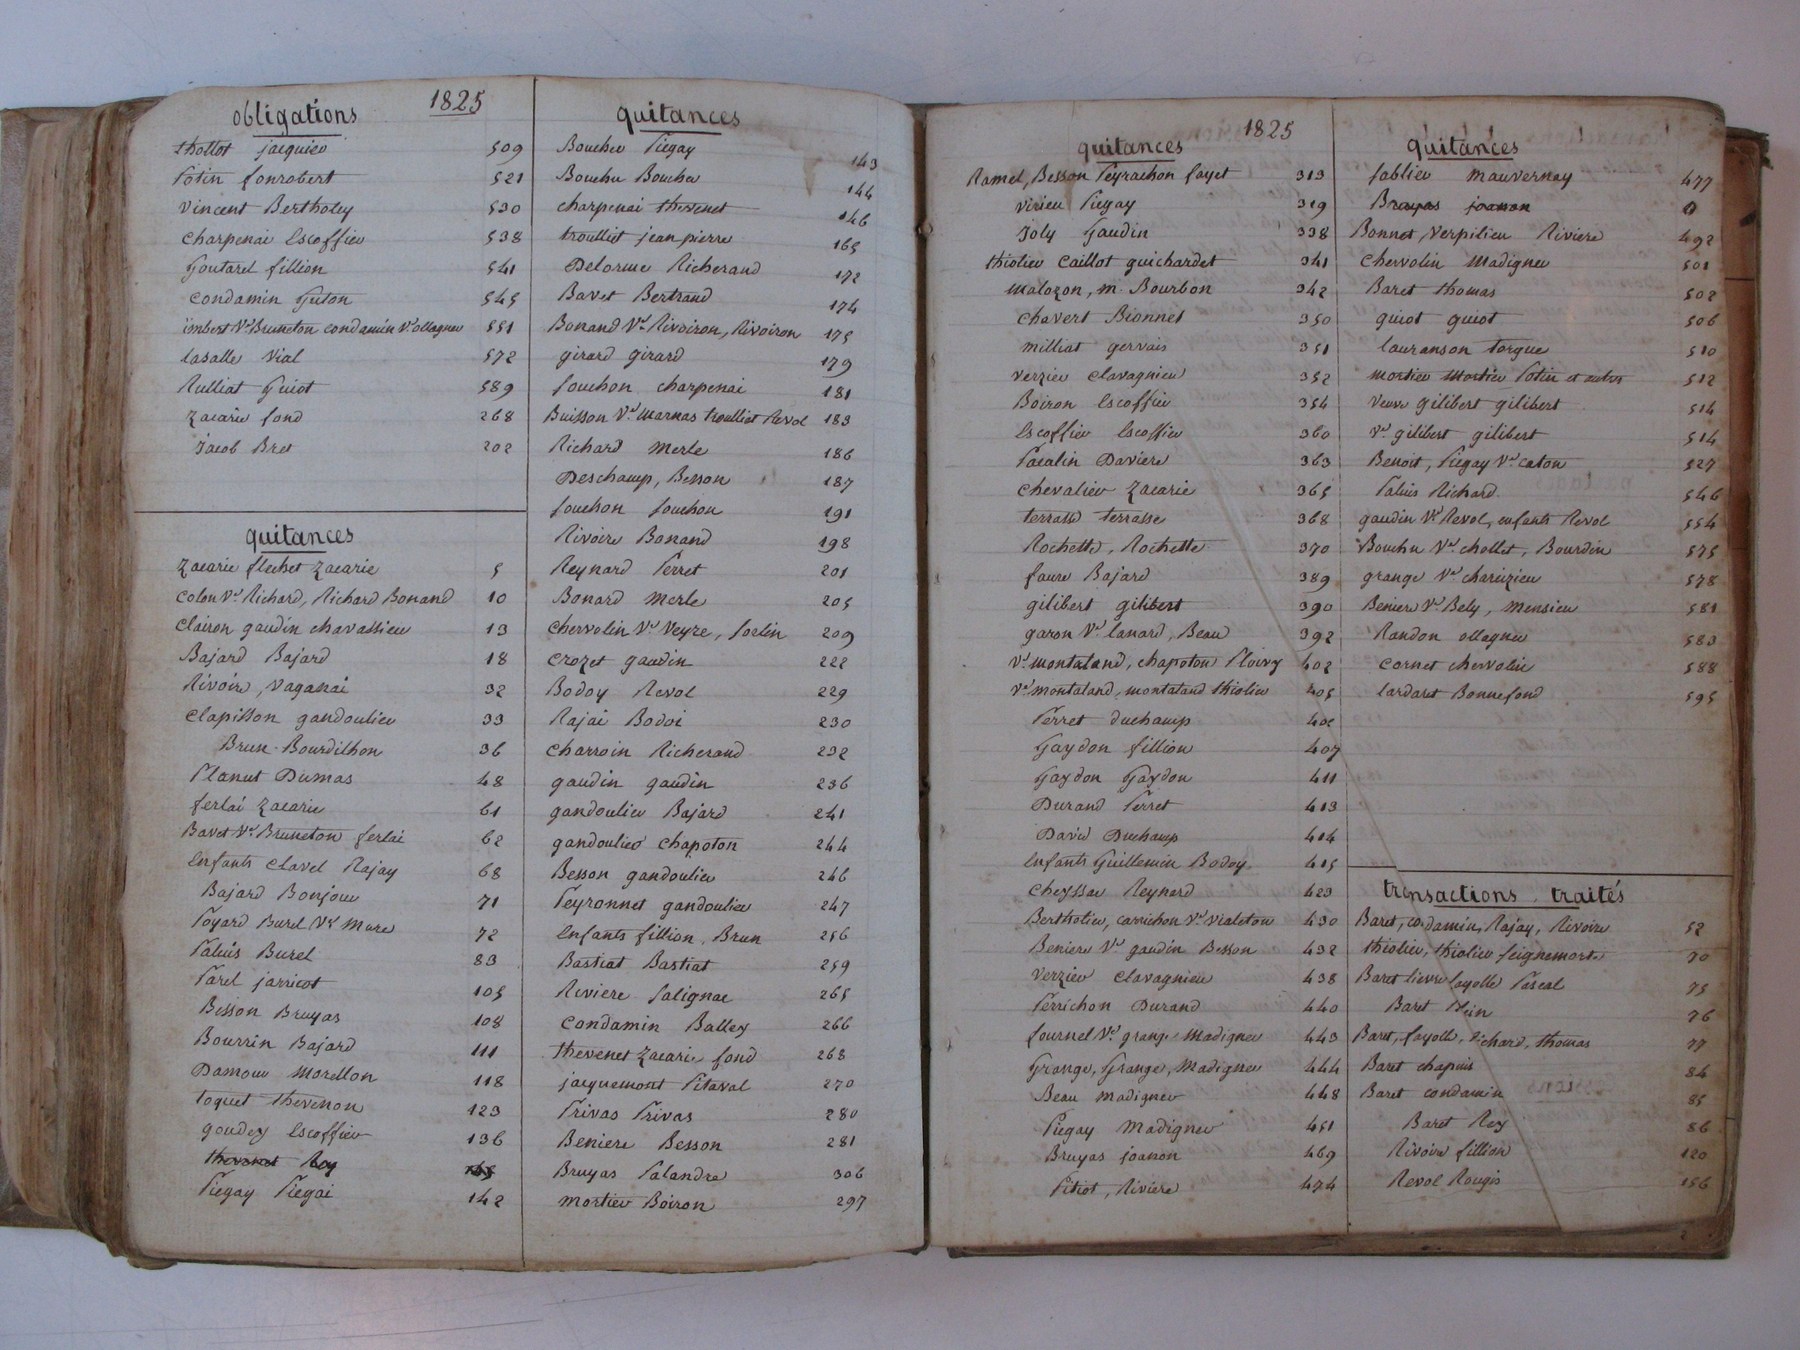 1825
obligations
thollot jacquier 509
Potin fonrobert 521
Vincent Bertholey 530
charpenai Escoffier 538
Goutarel fillion 541
Condamin Guton 545
imbert Ve Bruneton condamin Ve ollagnier 551
Lasalle Vial 572
Rulliat Guiot 589
Zacarie fond 268
Jacob Bret 202
quitances
Zacarie flechet Zacarie 5
Colon Ve Richard, Richard Bonand 10
Clairon gaudin chavassieu 13
Bajard Bajard 18
Rivoire, Vaganai 32
Clapisson gandoulier 33
Brun Bourdilhon 36
Planut Dumas 48
ferlai Zacarie 61
Bavet Ve Bruneton ferlai 62
Enfants Clavel Rajay 68
Bajard Bonjour 71
Poyard Burel Ve Mure 72
Paluis Burel 83
Parel jarricot 105
Besson Bruyas 108
Bourrin Bajard 111
Damour Morellon 118
Toquet Thevenon 123
goudey Escoffier 136
thevenet Rey
Piegay Piegai 142
quitances
Boucher Piegay 143
Bouchu Boucher 144
charpenai thevenet 146
troulliet jean pierre 165
Delorme Richerand 172
Bavet Bertrand 174
Bonand Ve Rivoiron, Rivoiron 175
girard girard 179
fouchon charpenai 181
Buisson Ve Marnas troulliet Revol 183
Richard Merle 186
Deschamp, Besson 187
fouchon fouchon 191
Rivoire Bonand 198
Reynard Perret 201
Bonard Merle 205
Chervolin Ve Veyre, forlin 209
Crozet gaudin 222
Bodoy Revol 229
Rajai Bodoi 230
Charroin Richerand 232
gaudin gaudin 236
gandoulier Bajard 241
gandoulier chapoton 244
Besson gandoulier 246
Peyronnet gandoulier 247
Enfants fillion Brun 256
Bastiat Bastiat 259
Riviere Salignac 265
Condamin Balley 266
thevenet Zacarie fond 268
jacquemont Pitaval 270
Privas Privas 280
Beniere Besson 281
Bruyas Palandre 306
Mortier Boiron 297
1825
quitances
Ramel, Besson Peyrachon fayet 313
Virieu Piegay 319
Joly Gaudin 338
thiolier Caillot guichardet 341
Malozon, m. Bourbon 342
Chavert Bionnet 350
Milliat gervais 351
Verzier Clavagnier 352
Boiron Escoffier 354
Escoffier Escoffier 360
Pacalin Daviere 363
Chevalier Zacarie 365
terrasse terrasse 368
Rochette, Rochette 370
faure Bajard 389
gilibert gilibert 390
garon Ve lanard, Beau 392
Ve montaland, chapoton Ploivy 402
Ve montaland, montaland thiolier 405
Perret duchamp
Gaydon fillion 407
Gaydon Gaydon 411
Durand Perret 413
David Duchamp 414
Enfants Guillemin Bodoy 415
Cheyssac Reynard 423
Bertholier, carrichon Ve Vialeton 430
Beniere Ve gaudin Besson 432
Verzier Clavagnier 438
Perrichon Durand 440
fournel Ve grange Madignier 443
Grange, Grange, Madignier 444
Beau Madignier 448
Piegay Madignier 451
Bruyas joanon 469
Pitiot, Riviere 474
quitances
fablier Mauvernay 477
Bruyas joanon
Bonnet, Verpilieu Riviere 492
Chervolin Madignier 501
Baret thomas 502
guiot guiot 506
Lauranson torgue 510
Mortier Mortier Potin et autres 512
Veuve gilibert gilibert 514
Ve gilibert gilibert 514
Benoit, Piegay Ve caton 527
Paluis Richard 546
gaudin Ve Revol, enfants Revol 554
Bouchu Ve chollet, Bourdin 575
grange Ve chareizieu 578
Beniere Ve Bely, Mensieu 581
Randon ollagnier 583
Cornet chervolin 588
Lardaret Bonnefond 595
transactions traités
Baret, condamin, Rajay, Rivoire 52
thiolier, thiolier seignemorte 70
Baret lievre fayolle Pascal 75
Baret Plein 76
Baret, fayolle, Richard, thomas 77
Baret chapuis 84
Baret condamin 85
Baret Rey 86
Rivoire fillion 120
Revol Rougis 156